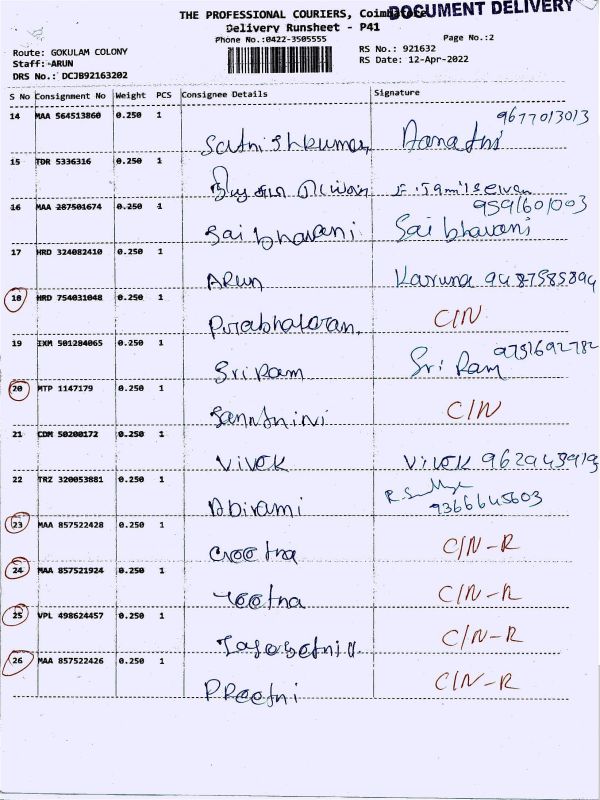 THE PROFESSIONAL COURIERS, Coimbatore
DOCUMENT DELIVERY
Delivery Runsheet - P41
Phone No.:0422-3505555
Page No.:2
Route: GOKULAM COLONY
RS No.: 921632
Staff:-ARUN
RS Date: 12-Apr-2022
DRS No.: DCJB92163202
S No Consignment No Weight PCS Consignee Details Signature
14 MAA 564513860 0.250 1
9677013013
Sathishkumar
15 TDR 5336316 0.250 1
F. Tamilselvan
16 MAA 287501674 0.250 1
9591601003
Saibhavani Sai bhavani
17 HRD 324082410 0.250 1
ARUN Karuna 9487585894
18 HRD 754031048 0.250 1
Prabhakaran C/N
19 IXM 501284065 0.250 1
9751692782
Sriram Sri Ram
20 MTP 1147179 0.250 1
C/N
21 CDM 50200172 0.250 1
VIVEK VIVEK 9629453919
22 TRZ 320053881 0.250 1
Abirami 9366645603
23 MAA 857522428 0.250 1
C/N-R
24 MAA 857521924 0.250 1
C/N-R
25 VPL 498624457 0.250 1
C/N-R
26 MAA 857522426 0.250 1
PReethi C/N-R